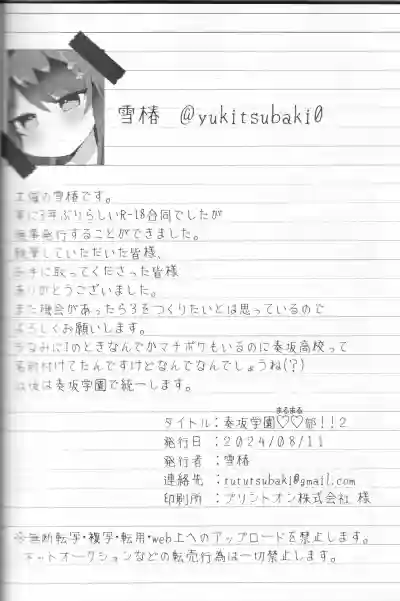 雪椿 @yukitsubaki0
主催の雪椿です。
実に3年ぶりらしいR-18合同でしたが
無事発行することができました。
執筆していただいた皆様、
お手に取ってくださった皆様
ありがとうございました。
また機会があったら3をつくりたいとは思っているので
よろしくお願いします。
ちなみに1のときなんでかマチポケもいるのに奏坂高校って
名前付けてたんですけどなんでなんでしょうね(?)
以後は奏坂学園で統一します。
まるまる
タイトル:奏坂学園♡♡部!!2
発行日:2024/08/11
発行者:雪椿
連絡先:rututsubaki@gmail.com
印刷所:プリントオン株式会社 様
※無断転写・複写・転用・web上へのアップロードを禁止します。
ネットオークションなどの転売行為は一切禁止します。